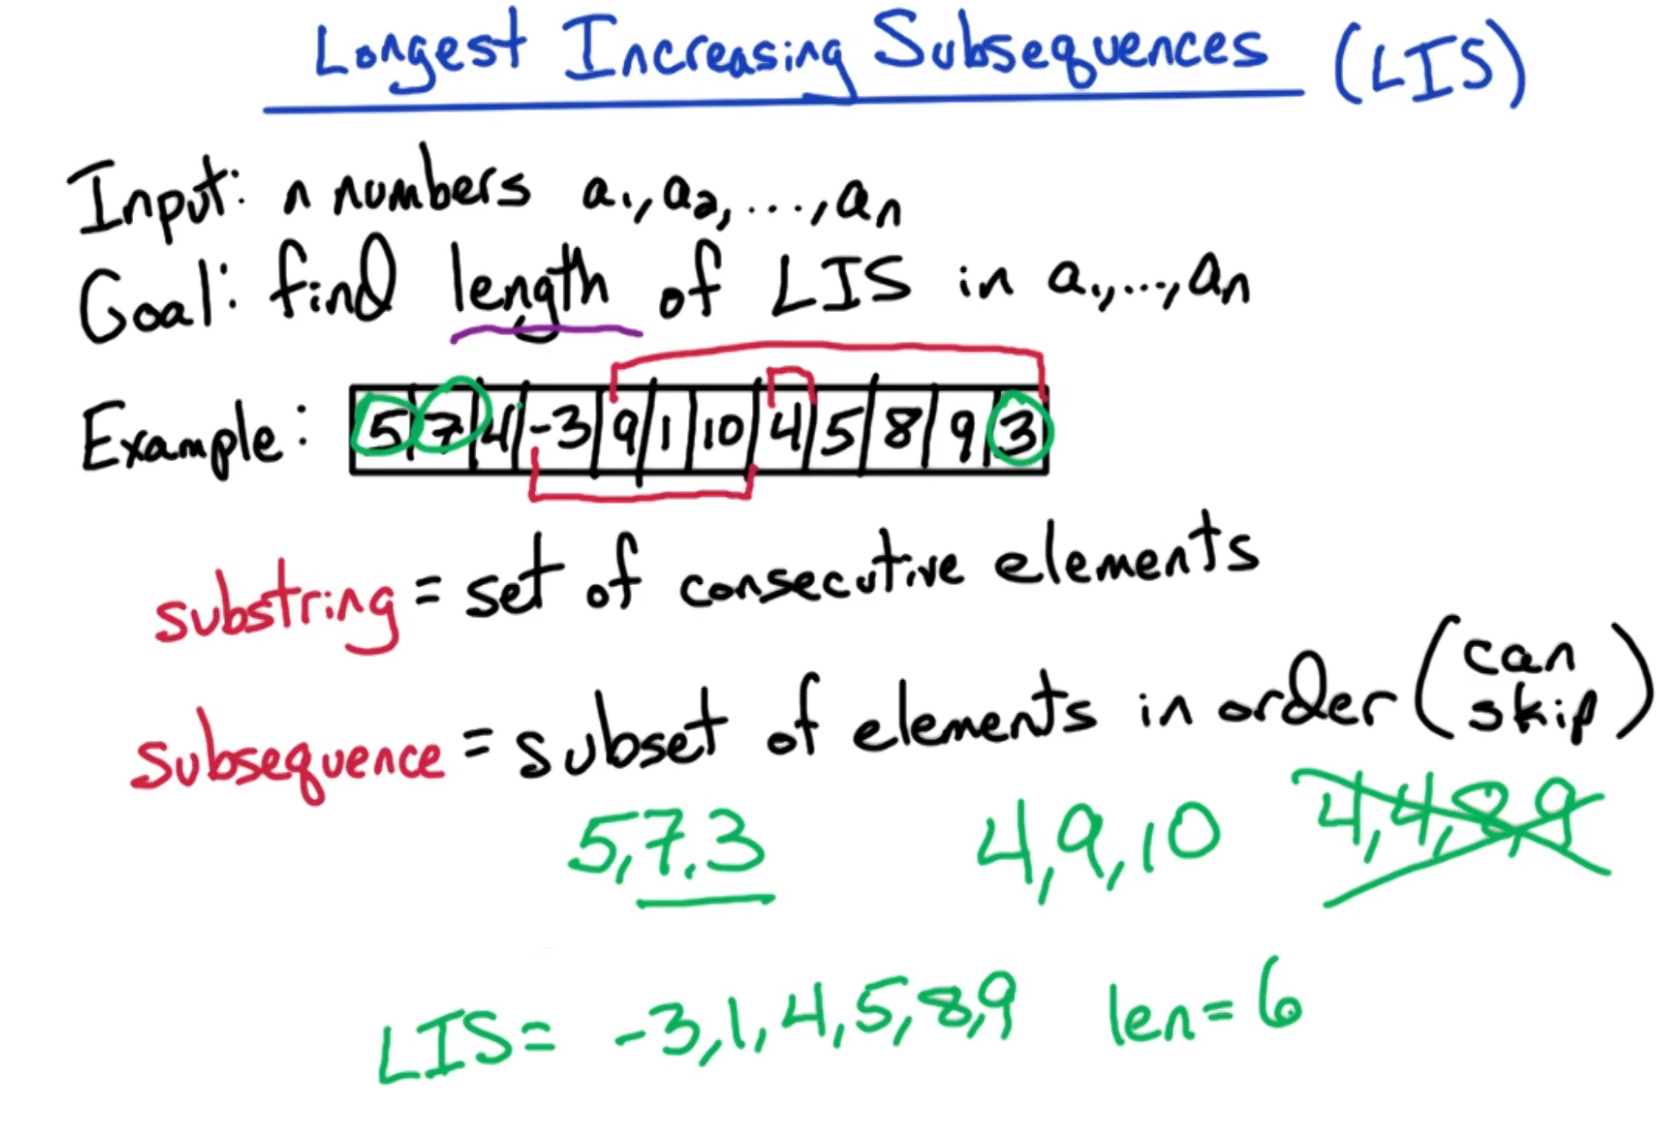 Longest Increasing Subsequences (LIS)
Input: n numbers a₁, a₂, ..., aₙ
Goal: find length of LIS in a₁, ..., aₙ
Example: 5 | 7 | 4 | -3 | 9 | 1 | 10 | 4 | 5 | 8 | 9 | 3
substring = set of consecutive elements
subsequence = subset of elements in order (can skip)
5, 7, 3 4, 9, 10 4, 4, 8, 9
LIS = -3, 1, 4, 5, 8, 9 len = 6